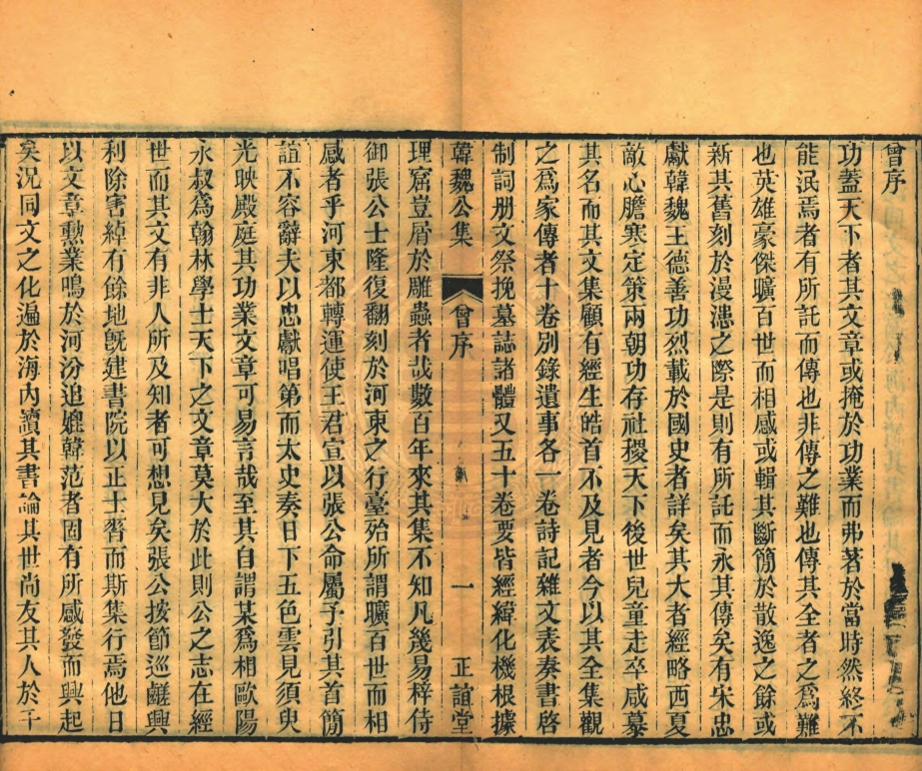 曾序
功蓋天下者其文章或掩於功業而弗著於當時然終不
能泯焉者有所託而傳也非傳之難也傳其全者之爲難
也英雄豪傑曠百世而相感或輯其斷簡於散逸之餘或
新其舊刻於漫漶之際是則有所託而永其傳矣有宋忠
獻韓魏王德善功烈載於國史者詳矣其大者經略西夏
敵心膽寒定策兩朝功存社稷天下後世兒童走卒咸慕
其名而其文集顧有經生皓首不及見者今以其全集觀
之爲家傳者十卷別錄遺事各一卷詩記雜文表奏書啓
制詞册文祭挽墓誌諸體又五十卷要皆經緯化機根據
韓魏公集 曾序 一 正誼堂
理窟豈屑於雕蟲者哉數百年來其集不知凡幾易梓侍
御張公士隆復翻刻於河東之行臺殆所謂曠百世而相
感者乎河東都轉運使王君宣以張公命屬予引其首簡
誼不容辭夫以忠獻唱第而太史奏日下五色雲見須臾
光映殿庭其功業文章可易言哉至其自謂某爲相歐陽
永叔爲翰林學士天下之文章莫大於此則公之志在經
世而其文有非人所及知者可想見矣張公按節巡鹺興
利除害綽有餘地旣建書院以正士習而斯集行焉他日
以文章勳業鳴於河汾追媲韓范者固有所感發而興起
矣況同文之化遍於海內讀其書論其世尚友其人於千